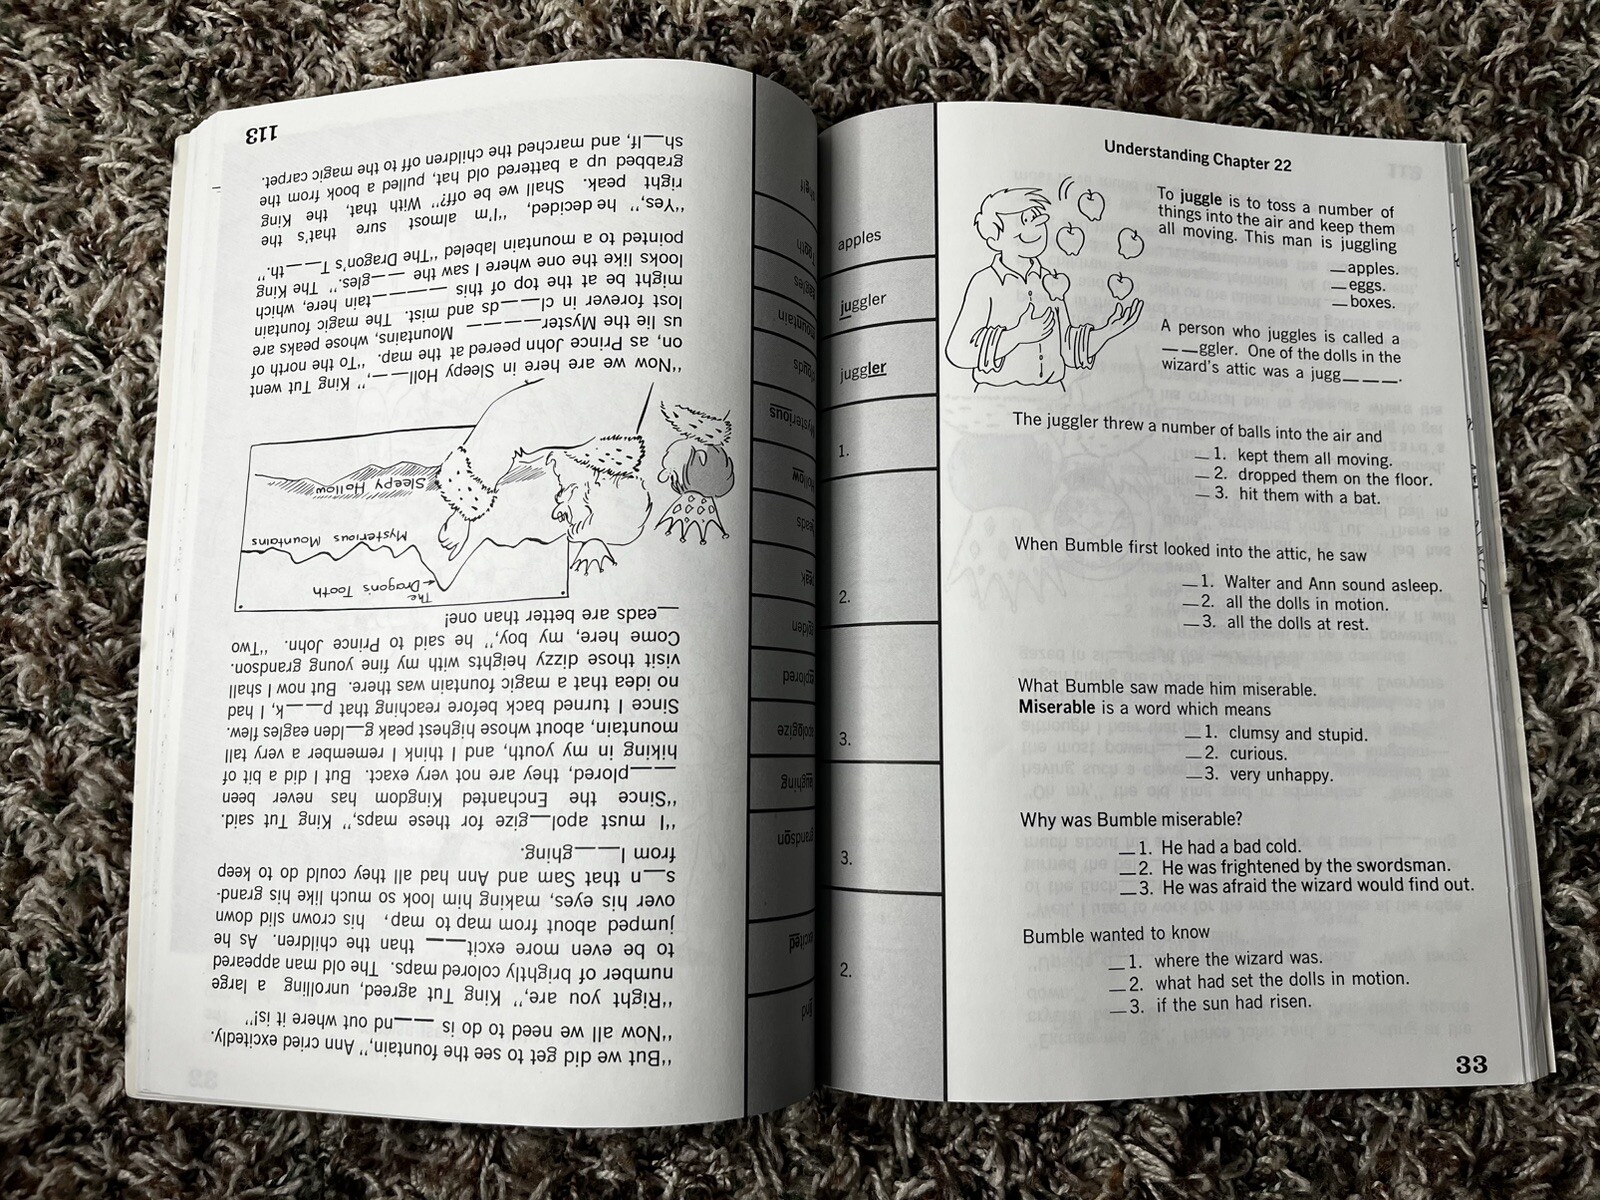 113
sh__lf, and marched the children off to the magic carpet.
grabbed up a battered old hat, pulled a book from the
right peak. Shall we be off?" With that, the King
"Yes," he decided, "I'm almost sure that's the
pointed to a mountain labeled "The Dragon's T____th."
looks like the one where I saw the ____gles." The King
might be at the top of this ________tain here, which
lost forever in cl____ds and mist. The magic fountain
us lie the Myster________ Mountains, whose peaks are
on, as Prince John peered at the map. "To the north of
"Now we are here in Sleepy Holl____," King Tut went
Sleepy Hollow
Mysterious Mountains
The
Dragon's Tooth
__eads are better than one!
Come here, my boy," he said to Prince John. "Two
visit those dizzy heights with my fine young grandson.
no idea that a magic fountain was there. But now I shall
Since I turned back before reaching that p____k, I had
mountain, about whose highest peak g__lden eagles flew.
hiking in my youth, and I think I remember a very tall
____plored, they are not very exact. But I did a bit of
"Since the Enchanted Kingdom has never been
"I must apol__gize for these maps," King Tut said.
from l____ghing.
s__n that Sam and Ann had all they could do to keep
over his eyes, making him look so much like his grand-
jumped about from map to map, his crown slid down
to be even more excit____ than the children. As he
number of brightly colored maps. The old man appeared
"Right you are," King Tut agreed, unrolling a large
"Now all we need to do is ____nd out where it is!"
"But we did get to see the fountain," Ann cried excitedly.
shelf
Tooth
eagles
mountain
clouds
Mysterious
Hollow
heads
peak
golden
explored
apologize
laughing
grandson
excited
find
apples
juggler
juggler
1.
2.
3.
3.
2.
Understanding Chapter 22
To juggle is to toss a number of
things into the air and keep them
all moving. This man is juggling
__apples.
__eggs.
__boxes.
A person who juggles is called a
____ggler. One of the dolls in the
wizard's attic was a jugg______.
The juggler threw a number of balls into the air and
__1. kept them all moving.
__2. dropped them on the floor.
__3. hit them with a bat.
When Bumble first looked into the attic, he saw
__1. Walter and Ann sound asleep.
__2. all the dolls in motion.
__3. all the dolls at rest.
What Bumble saw made him miserable.
Miserable is a word which means
__1. clumsy and stupid.
__2. curious.
__3. very unhappy.
Why was Bumble miserable?
__1. He had a bad cold.
__2. He was frightened by the swordsman.
__3. He was afraid the wizard would find out.
Bumble wanted to know
__1. where the wizard was.
__2. what had set the dolls in motion.
__3. if the sun had risen.
33